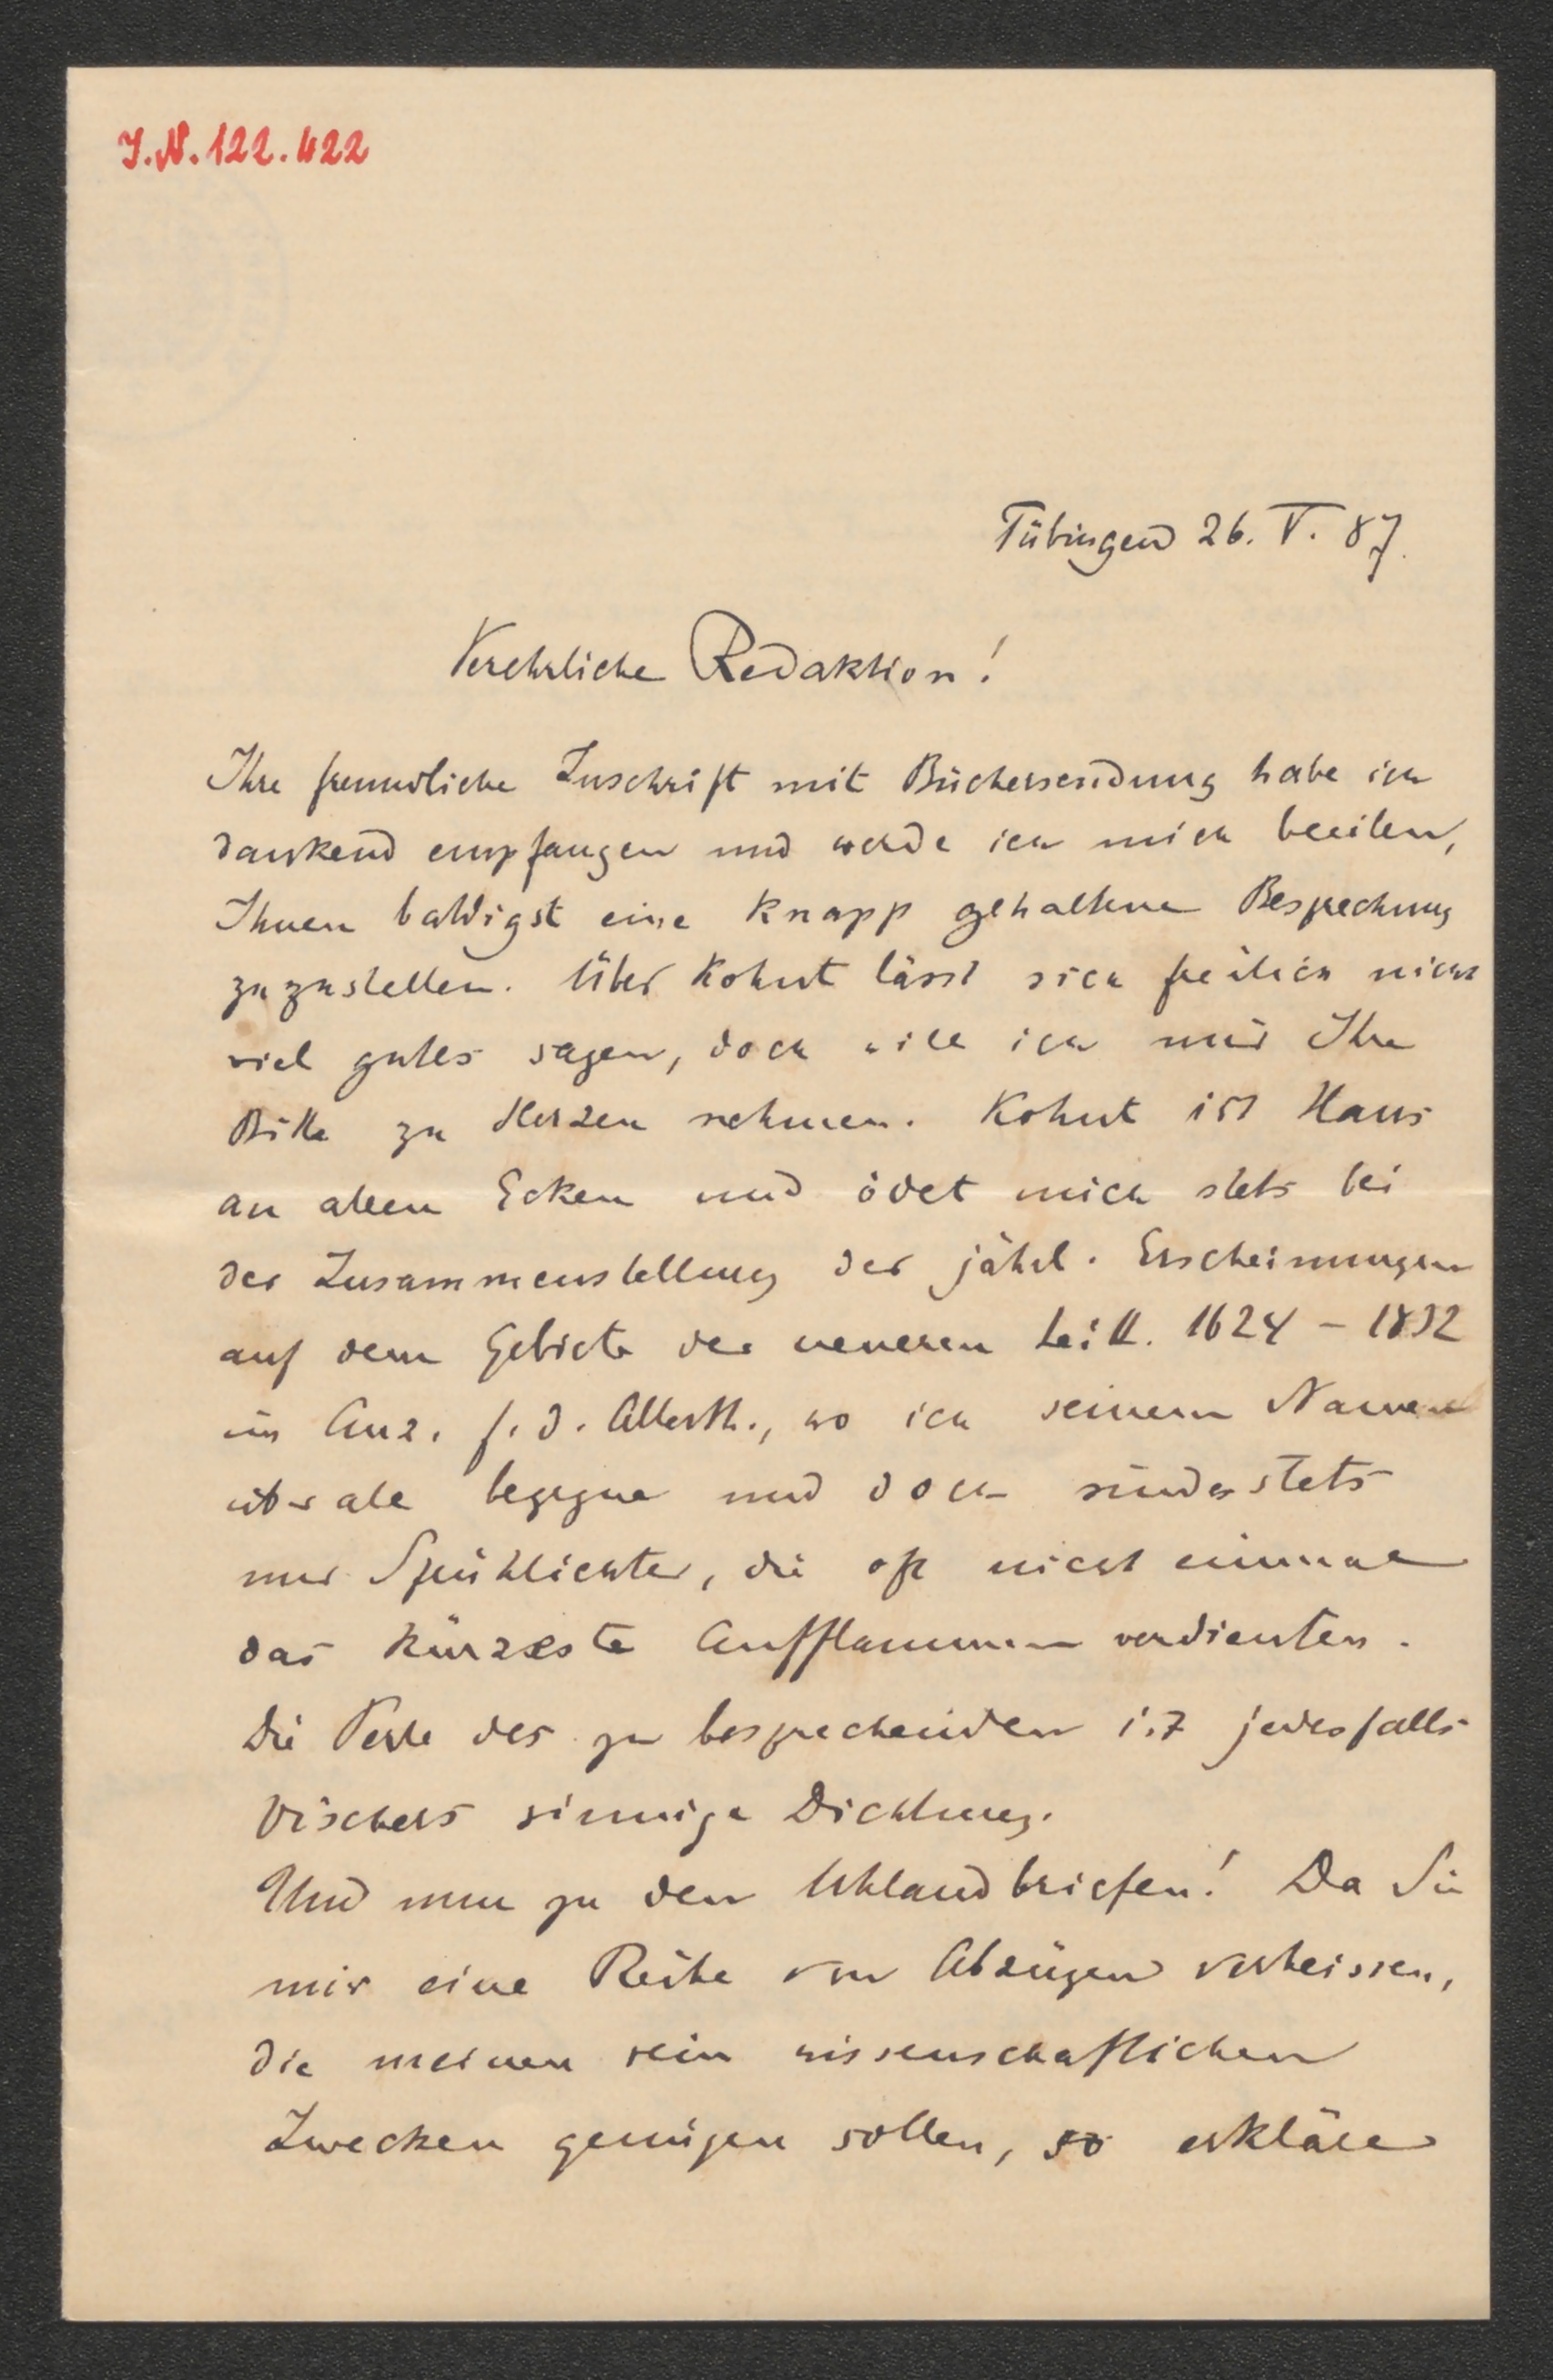 J.N. 122.422
Tübingen 26. V. 87.
Verehrliche Redaktion!
Ihre freundliche Zuschrift mit Büchersendung habe ich
dankend empfangen und werde ich mich beeilen,
Ihnen baldigst eine knapp gehaltene Besprechung
zuzustellen. Über Kohut lässt sich freilich nicht
viel gutes sagen, doch will ich mir Ihre
Bitte zu Herzen nehmen. Kohut ist Hans
an allen Ecken und ödet mich stets bei
der Zusammenstellung der jährl. Erscheinungen
auf dem Gebiete der neueren Litt. 1624 – 1832
im Anz. f. d. Alterth., wo ich seinem Namen
überall begegne und doch sind es stets
nur Spühllichter, die oft nicht einmal
das kürzeste Aufflammen verdienten.
Die Perle des zu besprechenden ist jedesfalls
Vischers sinnige Dichtung.
Und nun zu den Uhlandbriefen! Da Sie
mir eine Reihe von Abzügen verheissen,
die meinen rein wissenschaftlichen
Zwecken genügen sollen, so erkläre